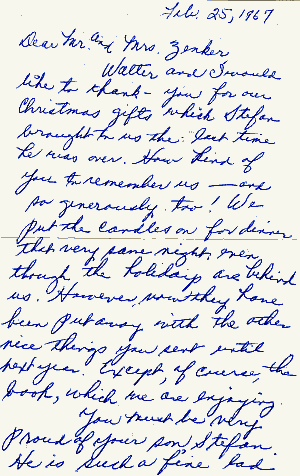 Feb. 25, 1967
Dear Mr. and Mrs. Zenker
Walter and I would
like to thank-you for our
Christmas gifts which Stefan
brought to us the last time
he was over. How kind of
you to remember us — and
so generously too! We
put the candles on for dinner
that very same night, even
though the holidays are behind
us. However, now they have
been put away with the other
nice things you sent until
next year. Except, of course, the
book, which we are enjoying.
You must be very
proud of your son, Stefan.
He is such a fine lad